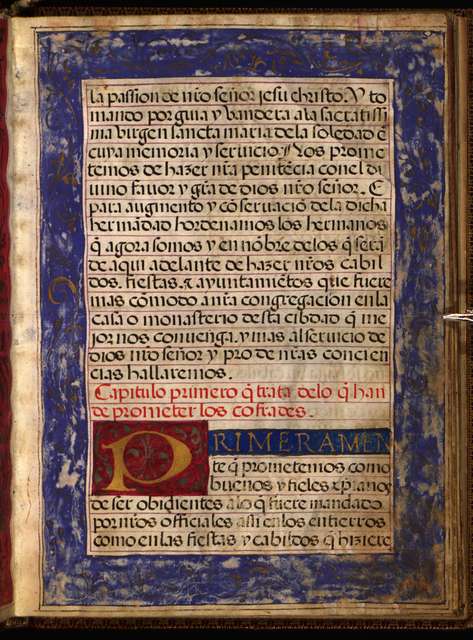 la passion de nr̃o señor jesu christo. Y to
mando por guia y bandera ala sacratissi
ma virgen sancta maria dela soledad e
cuya memoria y seruicio. Nos prome
temos de hazer nr̃a penitẽcia con el di
uino fauor y gr̃a de dios nr̃o señor. E
para augmento y cõseruaciõ dela dicha
hermãdad hordenamos los hermanos
q̃ agora somos y en nõbre delos q̃ serã
de aqui adelante de hazer nr̃os cabil
dos. fiestas. ⁊ ayuntamiẽtos que fuere
mas cõmodo a nr̃a congregacion en la
casa o monasterio desta cibdad q̃ me
jor nos conuenga. y mas al seruicio de
dios nr̃o señor y pro de nr̃as concien
cias hallaremos.
Capitulo primero q̃ trata delo q̃ han
de prometer los cofrades.
PRIMERAMEN
te q̃ prometemos como
buenos y fieles xp̃ianos
de ser obidientes a lo q̃ fuere mandado
por nr̃os officiales assi en los entierros
como en las fiestas y cabildos q̃ hiziere